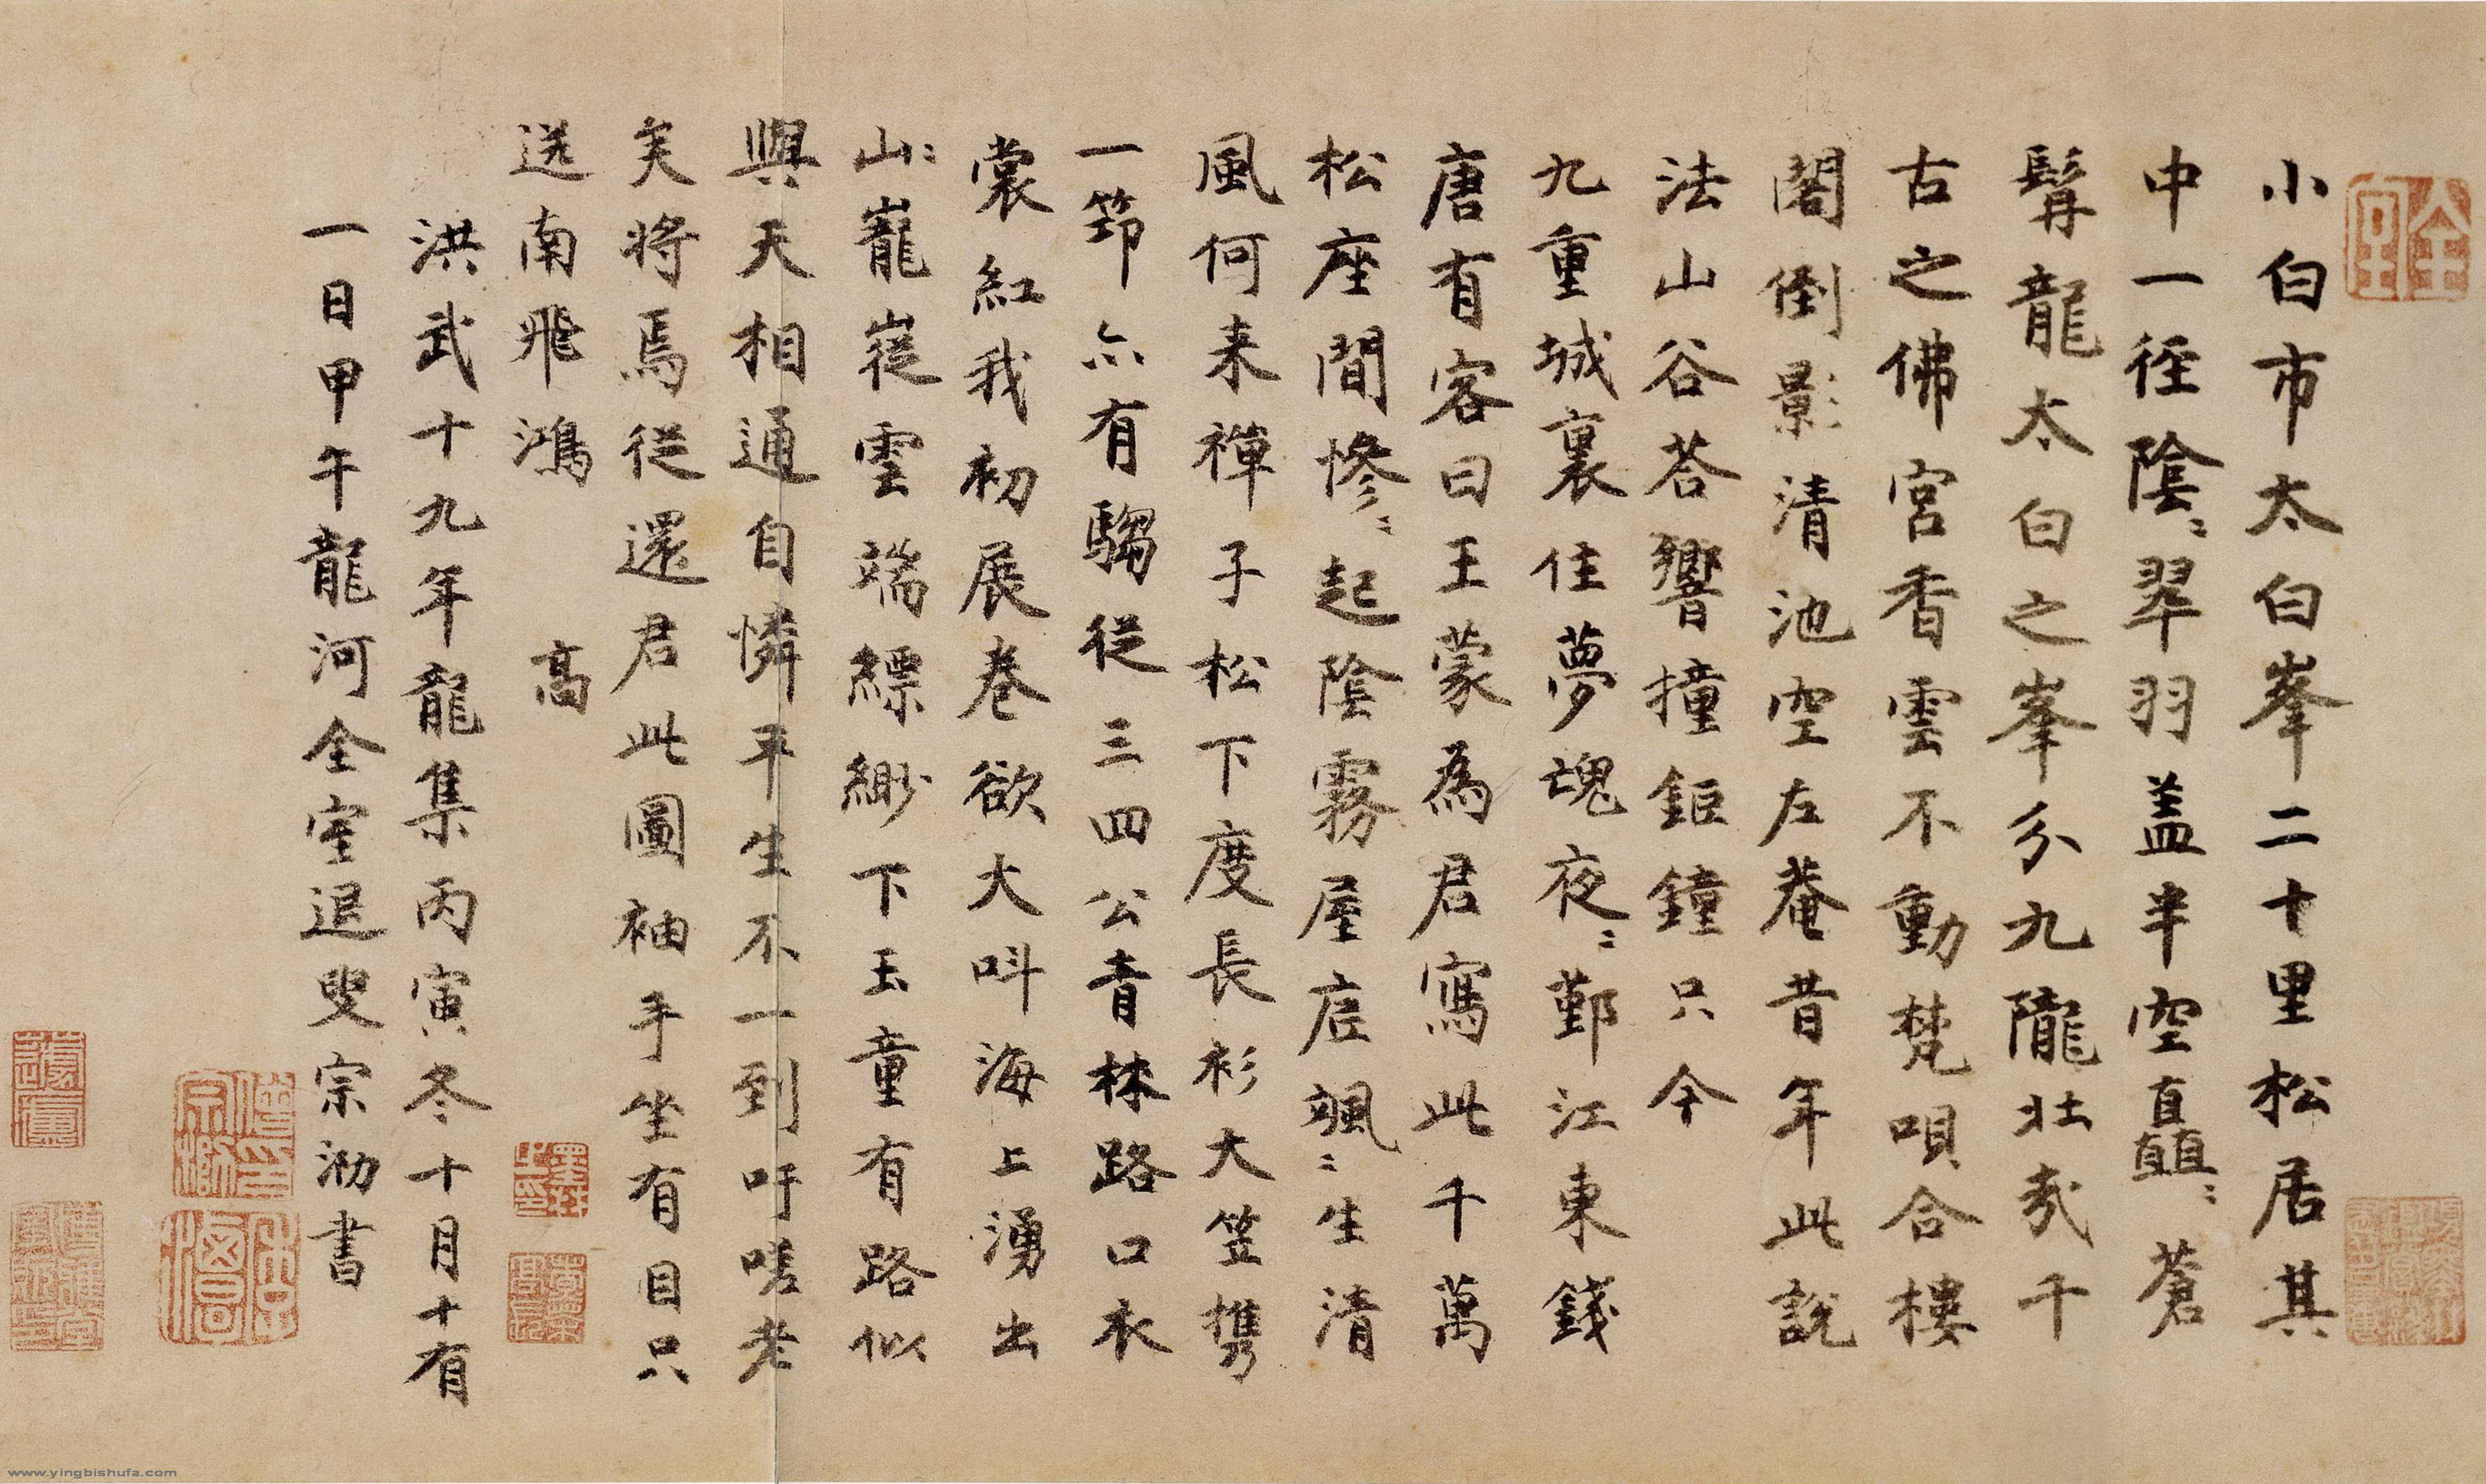 小白市太白峯二十里松居其
中一徑陰〻翠羽盖半空直矗〻蒼
髯龍太白之峯分九隴壯哉千
古之佛宮香雲不動梵唄合樓
閣倒影清池空左菴昔年此說
法山谷荅響撞鉅鐘只今
九重城裏住夢魂夜〻鄞江東錢
唐有客曰王蒙為君寫此千萬
松座間慘〻起陰霧屋底颯〻生清
風何来禪子松下度長衫大笠携
一笻亦有騶從三四公青林路口衣
裳紅我初展巻欲大呌海上湧出
山〻巃嵸雲端縹緲下玉童有路似
與天相通自憐平生不一到吁嗟老
矣將焉從還君此圖袖手坐有目只
送南飛鴻 高
洪武十九年龍集丙寅冬十月十有
一日甲午龍河全室退叟宗泐書
全室
www.yingbishufa.com